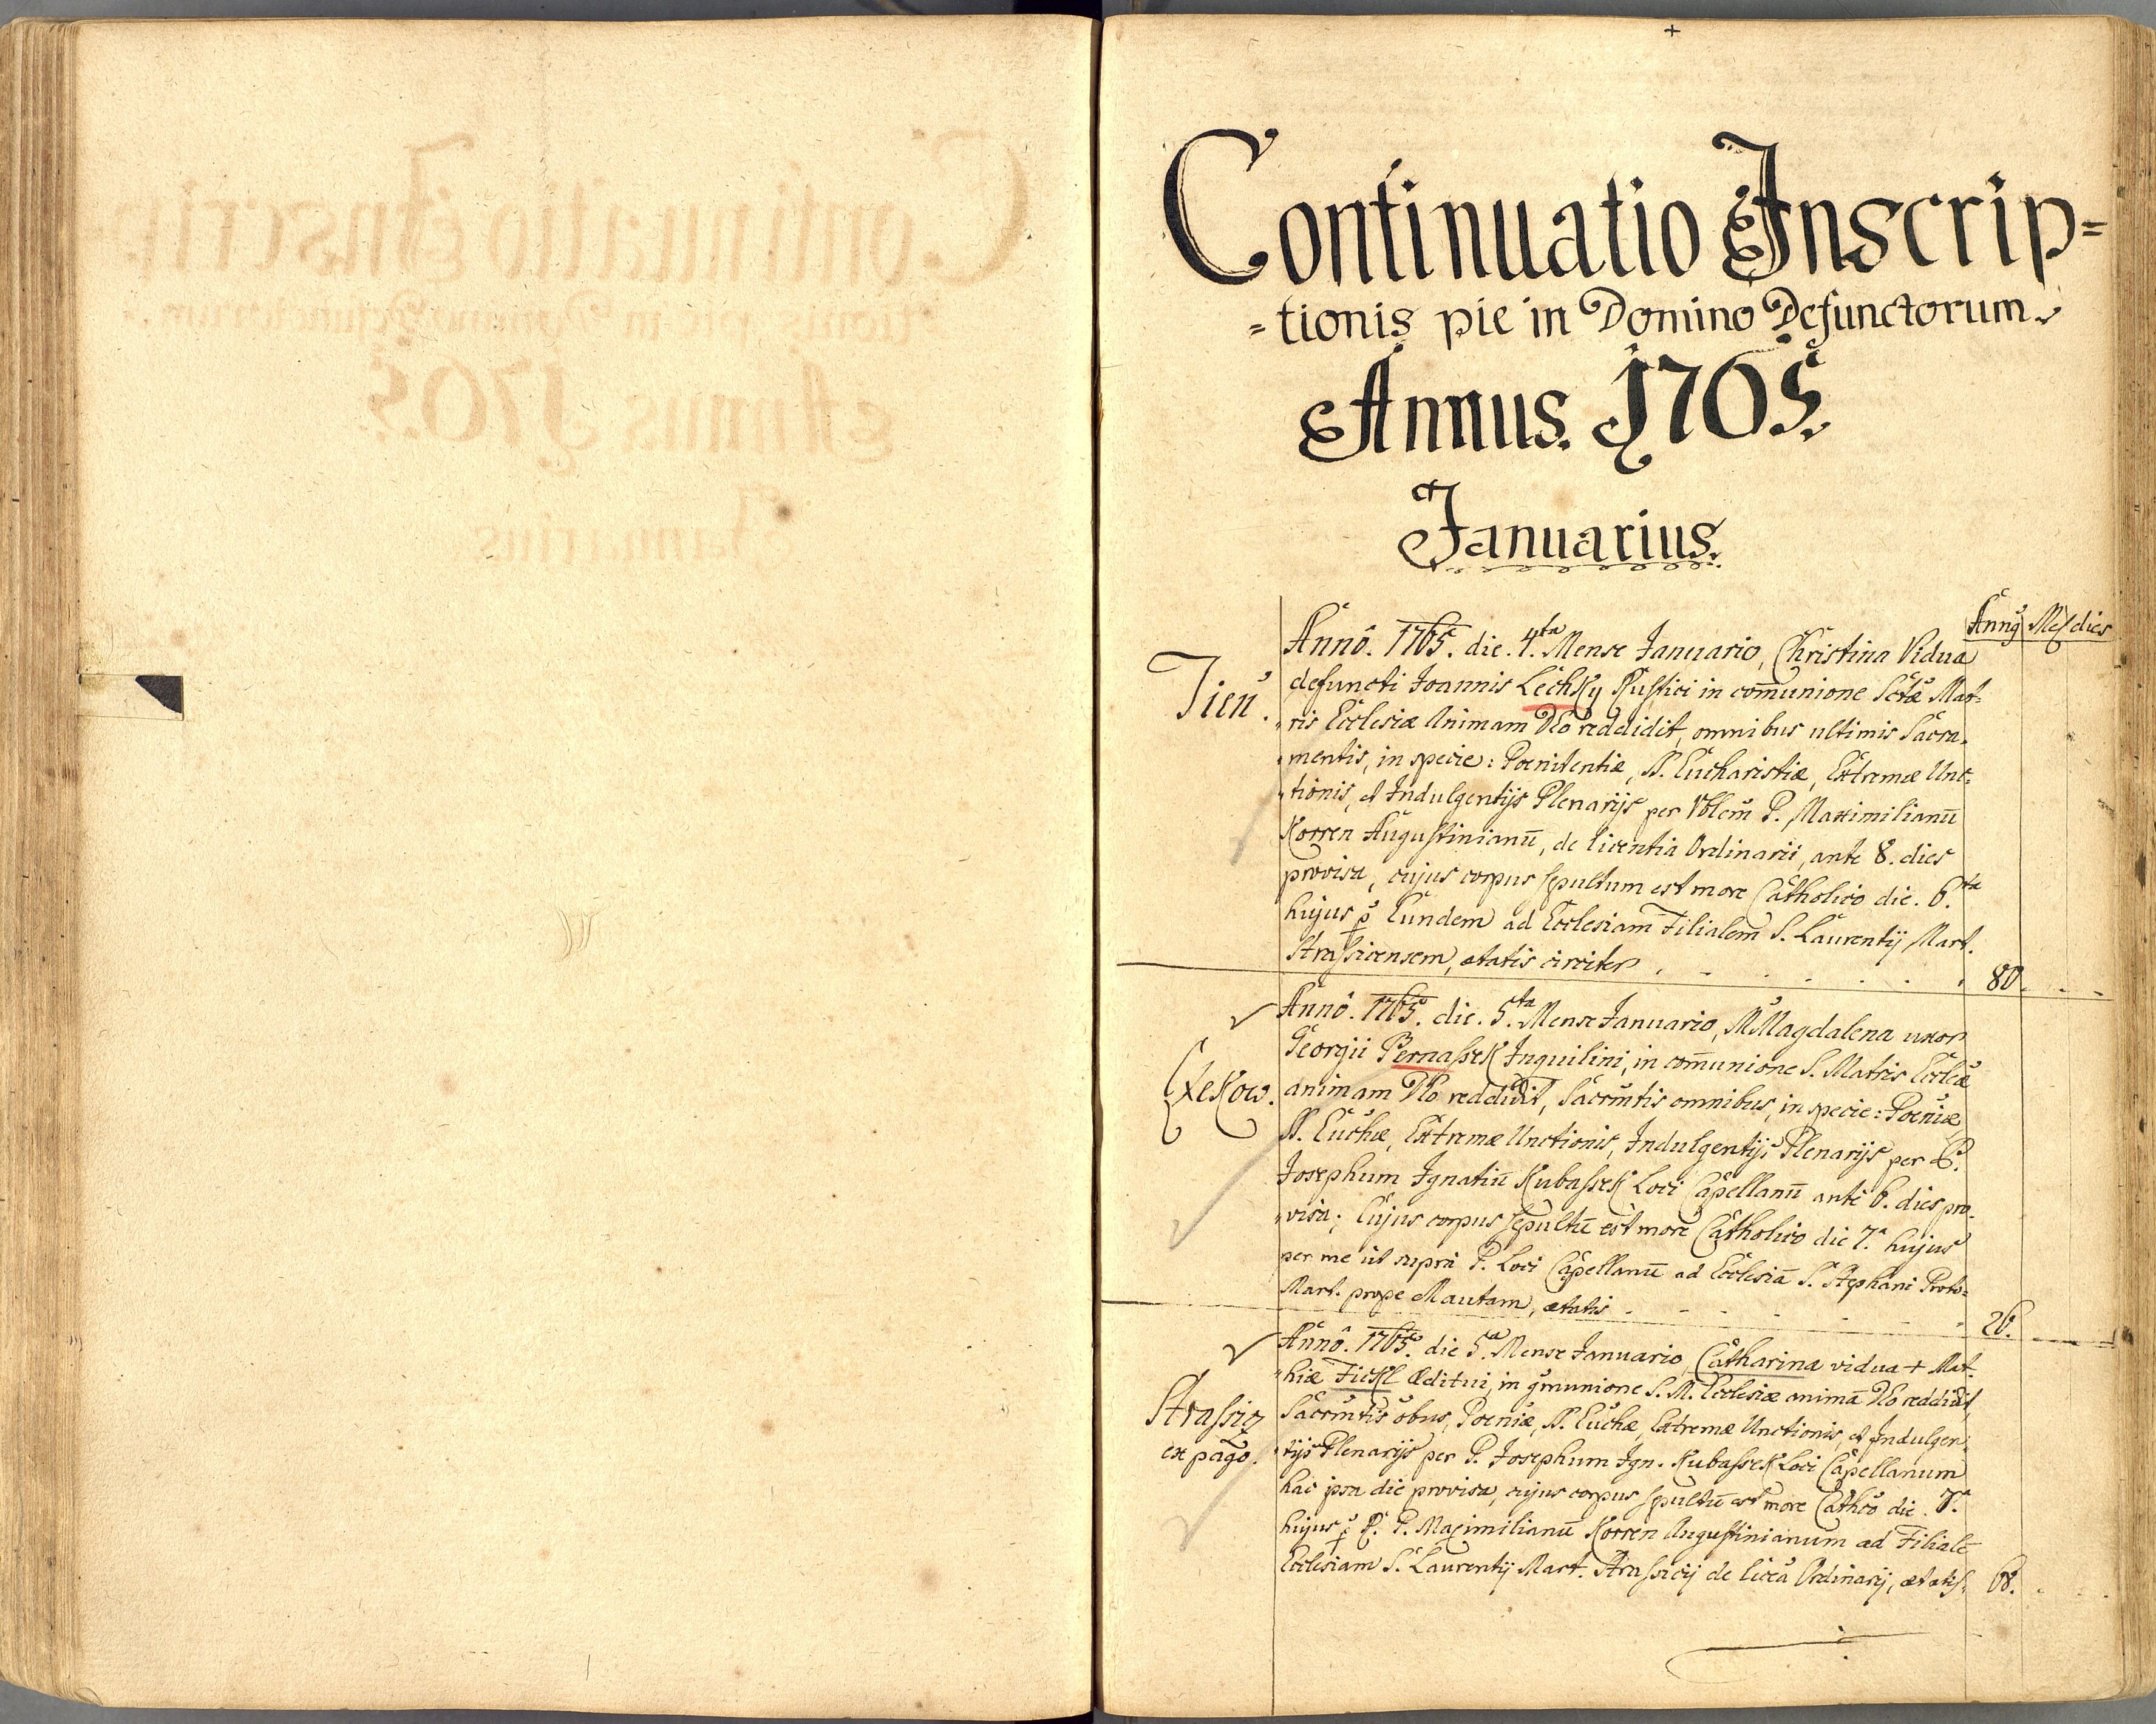 Continuatio Inscrip=
=tionis pie in Domino Defunctorum.
Annus. 1765.
Januarius.
Annꝯ Mes dies
Tien.
Annô. 1765. die. 4.ta Mense Januario, Christina Vidua
defuncti Joannis Lechky Rustici in com̄unione Sctæ Mat=
ris Ecclesiæ Animam Deo reddidit, omnibus ultimis Sacra=
mentis, in specie: Poenitentiæ, SS. Eucharistiæ, Extremæ Unc=
tionis, et Indulgentijs Plenarijs per Vblem P. Maximilianū
Korren Augustinianū, de licentia Ordinarii, ante 8. dies
provisa, cujus corpus sepultum est more Catholico die. 6.ta
hujus p Eundem ad Ecclesiam Filialem S. Laurentij Mart.
Strassicensem, ætatis circiter . . . . . . 80.
Čzekow.
Annô. 1765. die. 5.ta Mense Januario, M Magdalena uxor
Georgii Bernassek Inquilini, in com̄unione S. Matris Eccleæ
animam Deo reddidit, Sacrmtis omnibus, in specie: Poeniæ,
SS. Euchæ, Extremæ Unctionis, Indulgentijs Plenarijs per P.
Josephum Ignatiū Kubassek Loci Capellanū ante 6. dies pro=
visa; Cujus corpus sepultū est more Catholico die 7.a hujus
per me ut supra P. Loci Capellanū ad Ecclesiā S. Stephani Proto=
Mart. prope Mautam, ætatis . . . . . . 26.
Strassiz
ex pago.
Annô. 1765. die 5.a Mense Januario, Catharina vidua + Mat=
hiæ Fickl Æditui, in communione S. M. Ecclesiæ animā Deo reddidit,
Sacrmtis obus, Poeniæ, SS. Euchæ, Extremæ Unctionis, et Indulgen=
tijs Plenarijs per P. Josephum Ign. Kubassek Loci Capellanum
hac ipsa die provisa, cujus corpus sepultū est more Cathco die. 7.a
hujus p R. P. Maximilianū Korren Augustinianum ad Filialē
Ecclesiam S. Laurentij Mart. Strassicij de licea Ordinarij, ætatis. 68.